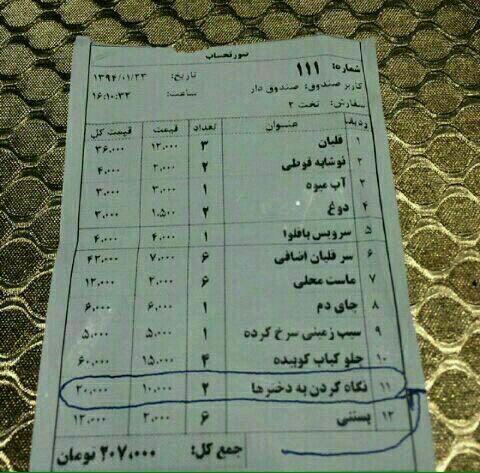 صورتحساب
شماره: ۱۱۱ تاریخ: ۱۳۹۴/۰۱/۲۳
کاربر صندوق: صندوق دار ساعت: ۱۶:۱۰:۳۲
سفارش: تخت ۲
ردیف عنوان تعداد قیمت قیمت کل
۱ قلیان ۳ ۱۲,۰۰۰ ۳۶,۰۰۰
۲ نوشابه قوطی ۲ ۲,۰۰۰ ۴,۰۰۰
۳ آب میوه ۱ ۳,۰۰۰ ۳,۰۰۰
۴ دوغ ۲ ۱,۵۰۰ ۳,۰۰۰
۵ سرویس باقلوا ۱ ۴,۰۰۰ ۴,۰۰۰
۶ سر قلیان اضافی ۶ ۷,۰۰۰ ۴۲,۰۰۰
۷ ماست محلی ۶ ۲,۰۰۰ ۱۲,۰۰۰
۸ چای دم ۱ ۶,۰۰۰ ۶,۰۰۰
۹ سیب زمینی سرخ کرده ۱ ۵,۰۰۰ ۵,۰۰۰
۱۰ چلو کباب کوبیده ۴ ۱۵,۰۰۰ ۶۰,۰۰۰
۱۱ نگاه کردن به دخترها ۲ ۱۰,۰۰۰ ۲۰,۰۰۰
۱۲ بستنی ۶ ۲,۰۰۰ ۱۲,۰۰۰
جمع کل: ۲۰۷,۰۰۰ تومان